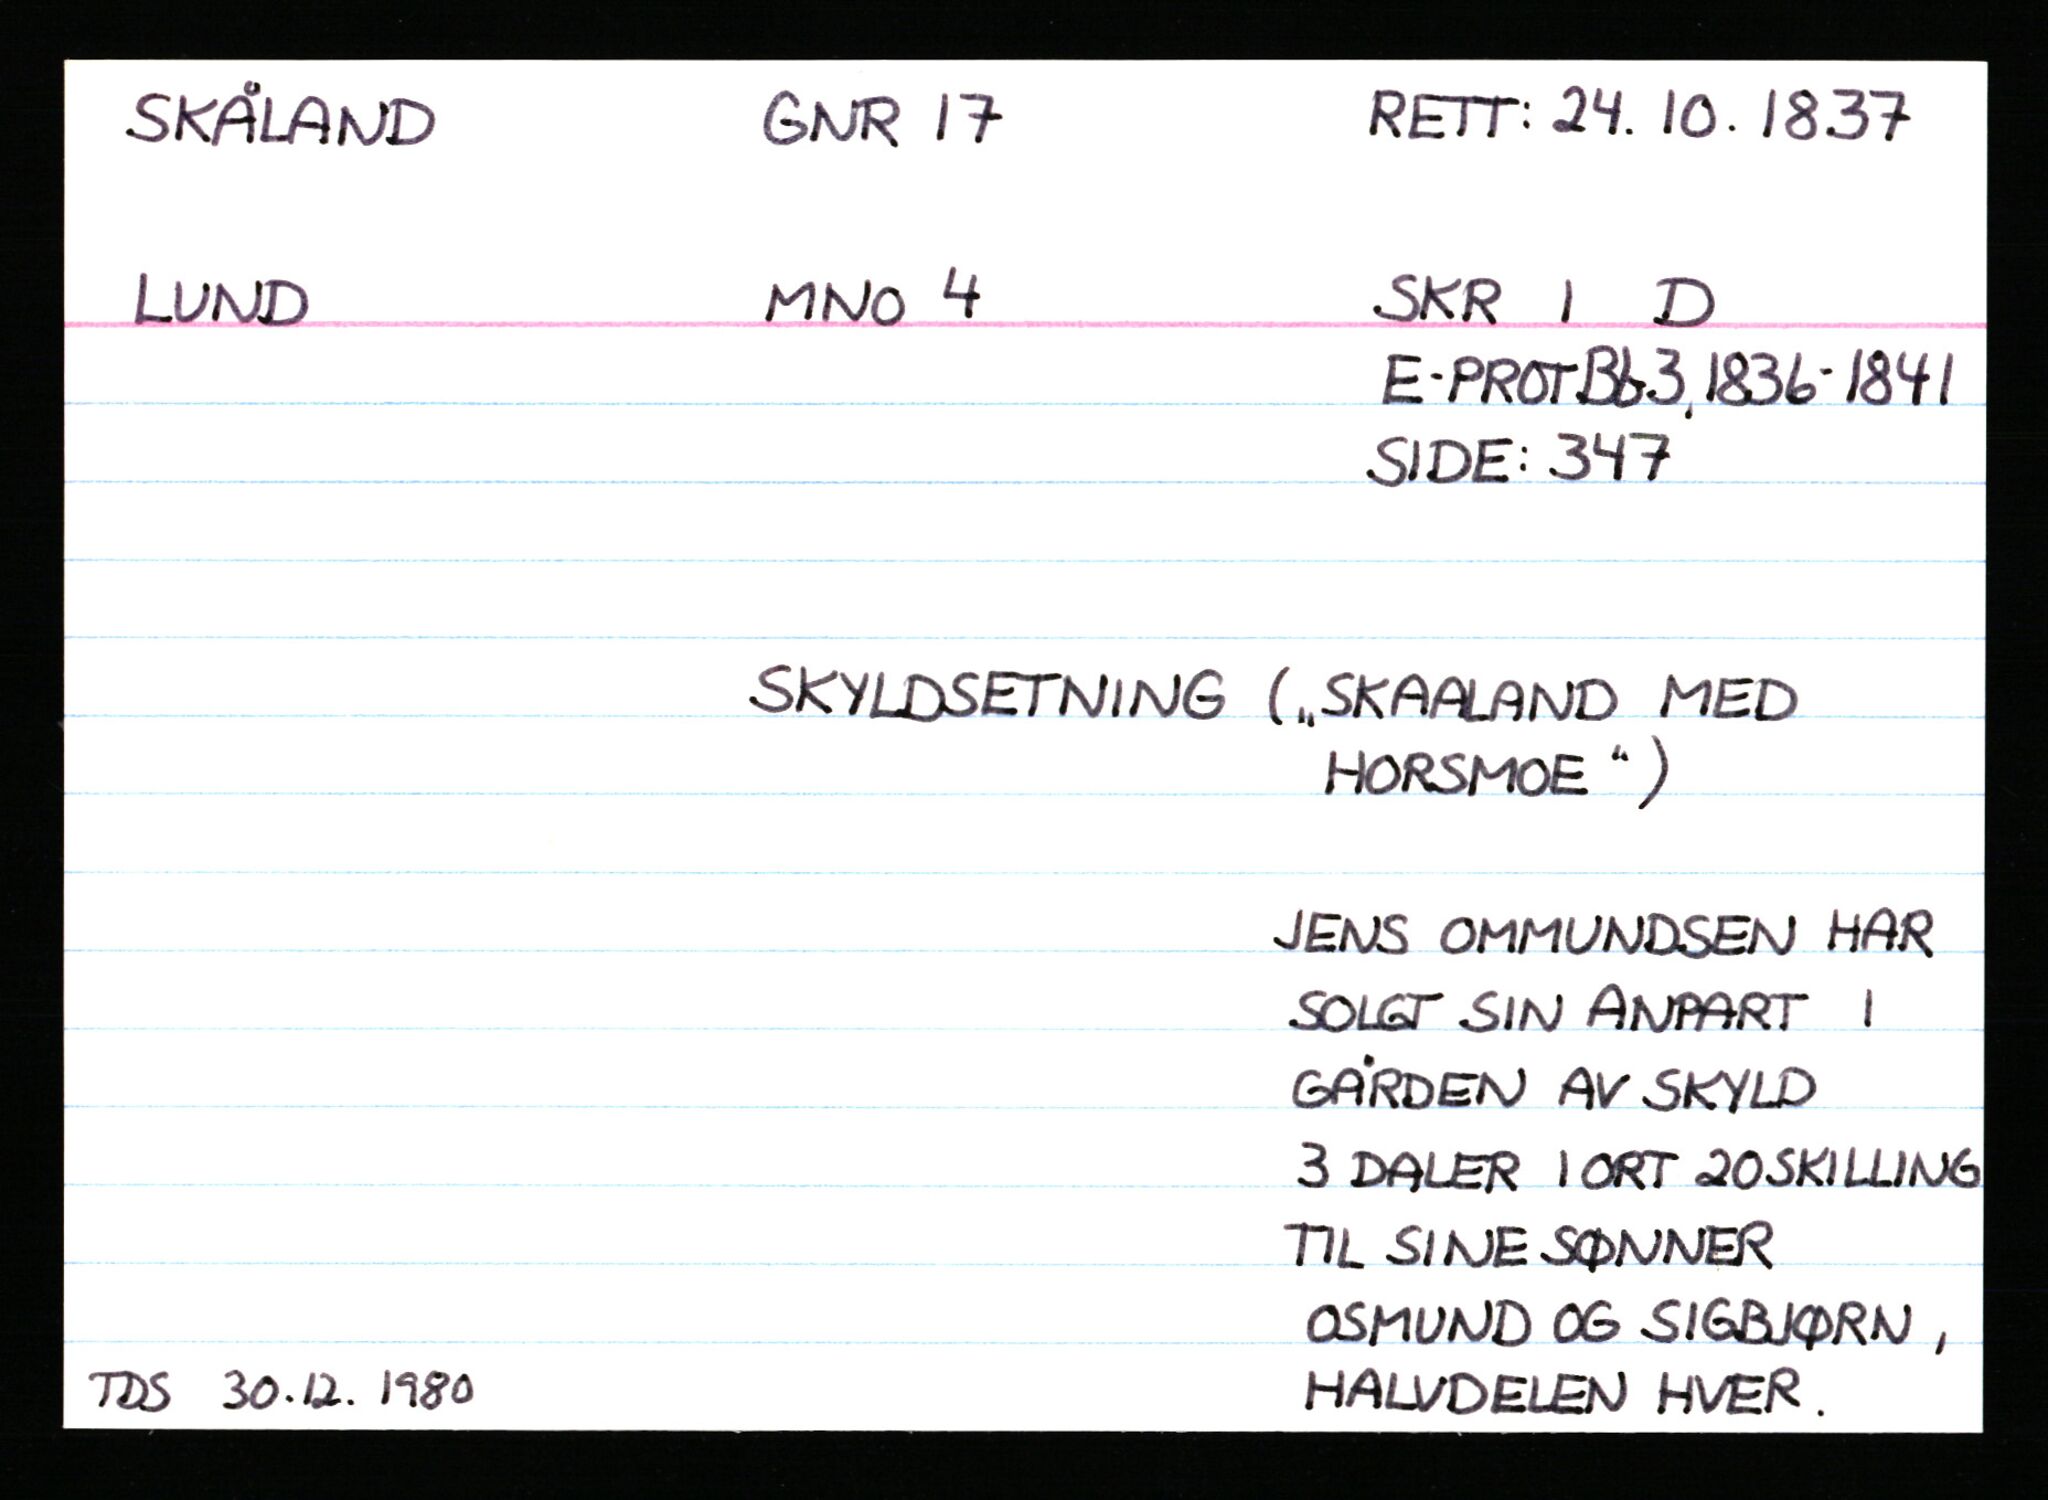 SKÅLAND GNR 17 RETT: 24.10.1837
LUND MNO 4 SKR I D
E-PROT Bb3, 1836-1841
SIDE: 347
SKYLDSETNING („SKAALAND MED
HORSMOE“)
JENS OMMUNDSEN HAR
SOLGT SIN ANPART I
GÅRDEN AV SKYLD
3 DALER 1 ORT 20 SKILLING
TIL SINE SØNNER
OSMUND OG SIGBJØRN,
HALVDELEN HVER.
TDS 30.12.1980